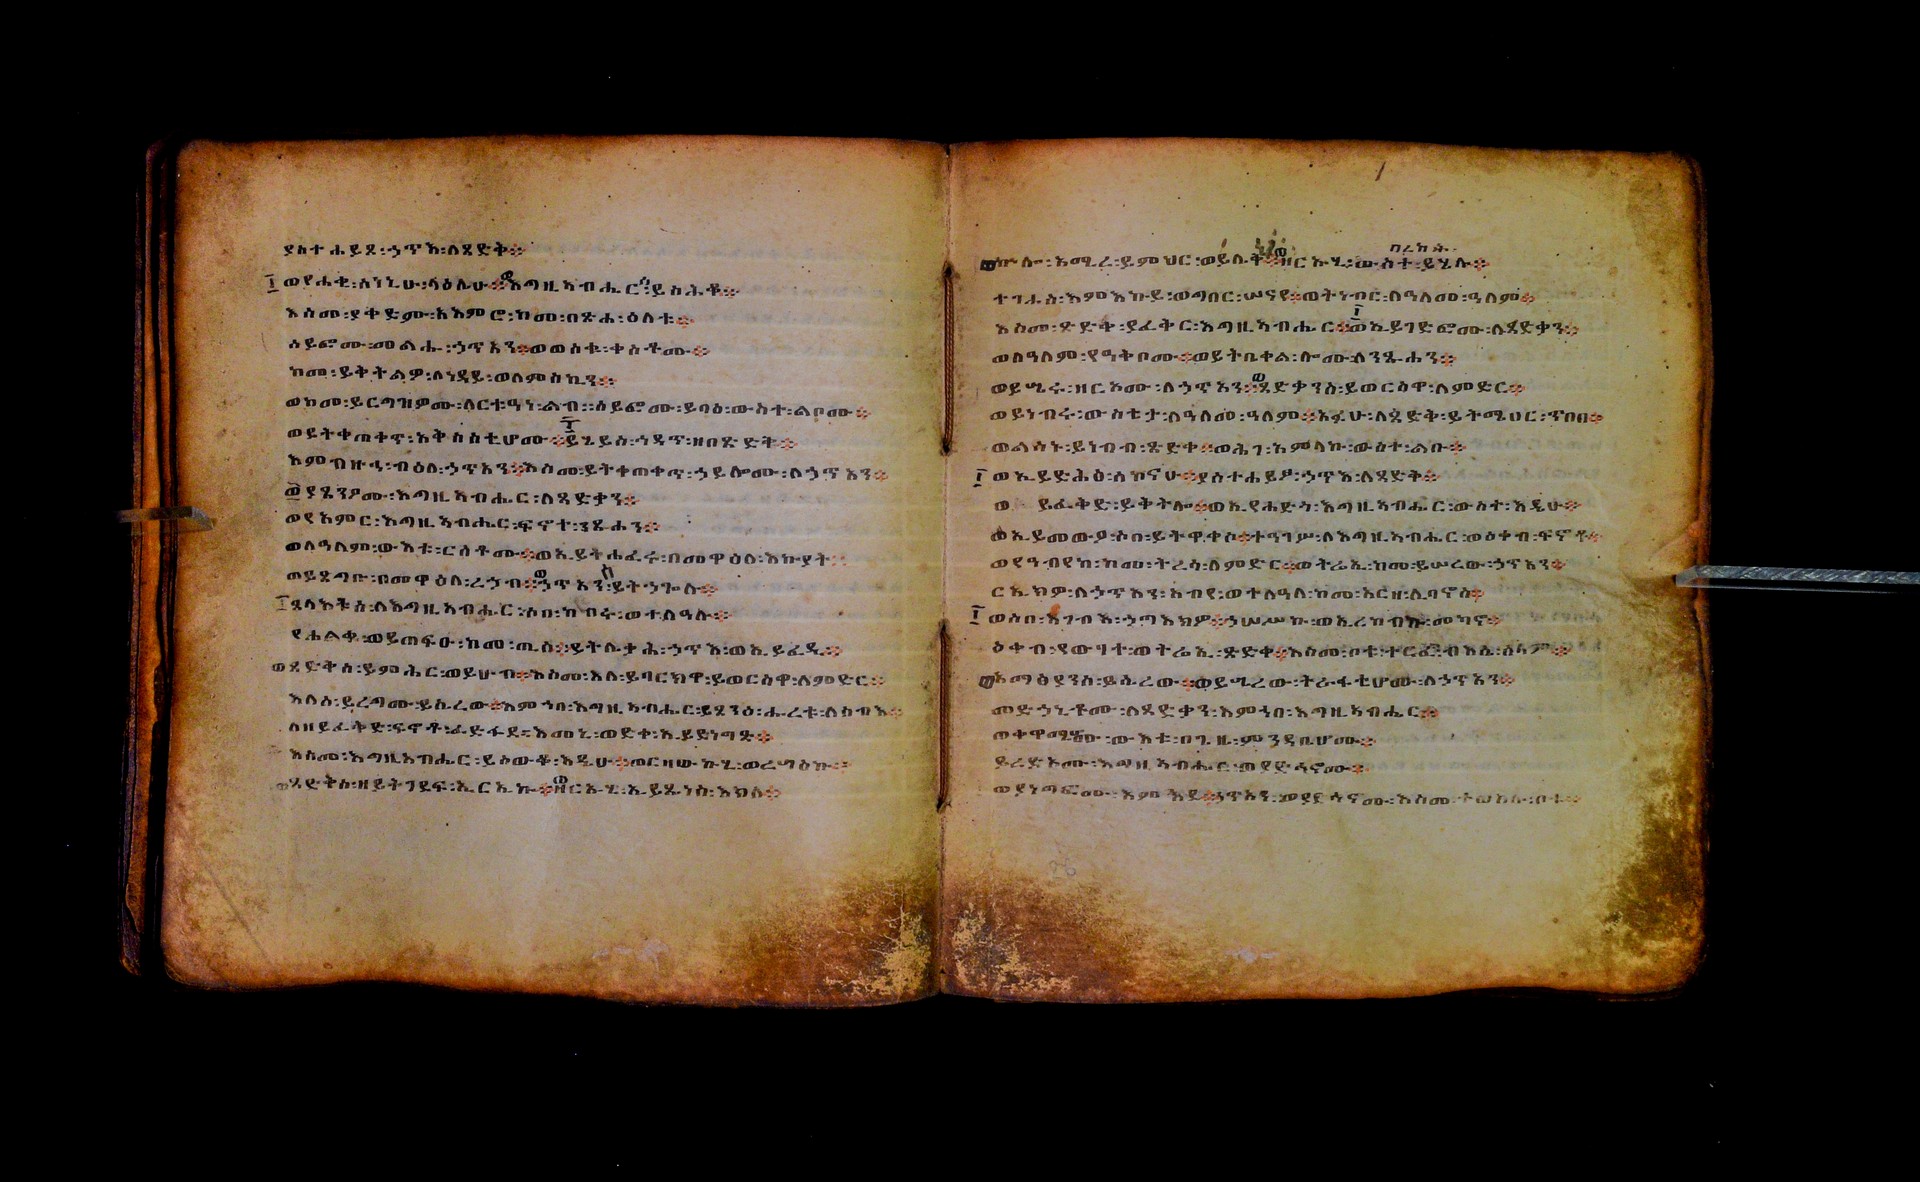 ያስተሐይጽ፡ኃጥእ፡ለጻድቅ።
ወየሐቂ፡ስነኒሁ፡ላዕሌሁ።ወእግዚአብሔርሰ፡ይስሕቆ።
እስመ፡ያቀድም፡አእምሮ፡ከመ፡በጽሐ፡ዕለቱ።
ሰይፎሙ፡መልሑ፡ኃጥኣን።ወወሰቁ፡ቀስቶሙ።
ከመ፡ይቅትልዎ፡ለነዳይ፡ወለምስኪን።
ወከመ፡ይርግዝዎሙ፡ለርቱዓነ፡ልብ።ሰይፎሙ፡ይባዕ፡ውስተ፡ልቦሙ።
ወይትቀጠቀጥ፡አቅስስቲሆሙ።ይኄይስ፡ኅዳጥ፡ዘበጽድቅ።
እምብዙኃ፡ብዕለ፡ኃጥኣን።እስመ፡ይትቀጠቀጥ፡ኃይሎሙ፡ለኃጥኣን።
ወያጸንዖሙ፡እግዚአብሔር፡ለጻድቃን።
ወየአምር፡እግዚአብሔር፡ፍኖተ፡ንጹሓን።
ወለዓለም፡ውእቱ፡ርስቶሙ።ወኢይትሐፈሩ፡በመዋዕለ፡እኩያት።
ወይጸግቡ፡በመዋዕለ፡ረኃብ።ወኃጥኣንሰ፡ይትኃጐሉ።
ጸላእቱሰ፡ለእግዚአብሔር፡ሶበ፡ከብሩ፡ወተለዓሉ።
የሐልቁ፡ወይጠፍኡ፡ከመ፡ጢስ።ይትሌቃሕ፡ኃጥእ፡ወኢይፈዲ።
ወጻድቅሰ፡ይምሕር፡ወይሁብ።እስመ፡እለ፡ይባርክዎ፡ይወርስዋ፡ለምድር።
እለሰ፡ይረግሙ፡ይሤረዉ።እምኀበ፡እግዚአብሔር፡ይጸንዕ፡ሑረቱ፡ለሰብእ።
ለዘይፈቅድ፡ፍኖቶ፡ፈድፋደ።እመኒ፡ወድቀ፡ኢይደነግጽ።
እስመ፡እግዚአብሔር፡ይሰውቆ፡እዴሁ።ወርዘውኩሂ፡ወረሣዕኩ።
ወጻድቅሰ፡ዘይትገደፍ፡ኢርኢኩ።ወዘርኡሂ፡ኢይጼነስ፡እክለ።
ኵሎ፡አሚረ፡ይምህር፡ወይሌቅሕ።ወዘርኡሂ፡ውስተ፡በረከት፡ይሄሉ።
ተገሐስ፡እምእኩይ፡ወግበር፡ሠናየ።ወትነብር፡ለዓለመ፡ዓለም።
እስመ፡ጽድቀ፡ያፈቅር፡እግዚአብሔር።ወኢይገድፎሙ፡ለጻድቃን።
ወለዓለም፡የዓቅቦሙ።ወይትቤቀል፡ሎሙ፡ለንጹሓን።
ወይሤሩ፡ዘርኦሙ፡ለኃጥኣን።ወጻድቃንሰ፡ይወርስዋ፡ለምድር።
ወይነብሩ፡ውስቴታ፡ለዓለመ፡ዓለም።አፉሁ፡ለጻድቅ፡ይትሜሀር፡ጥበበ።
ወልሳኑ፡ይነብብ፡ጽድቀ።ወሕገ፡አምላኩ፡ውስተ፡ልቡ።
ወኢይድሕፅ፡ሰኰናሁ።ያስተሐይፆ፡ኃጥእ፡ለጻድቅ።
ወይፈቅድ፡ይቅትሎ።ወኢየሐድጎ፡እግዚአብሔር፡ውስተ፡እዴሁ።
ወኢይመውዖ፡ሶበ፡ይትዋቀሶ።ተዓገሥ፡ለእግዚአብሔር፡ወዕቀብ፡ፍኖቶ።
ወያዓብየከ፡ከመ፡ትረሳ፡ለምድር።ወትሬኢ፡ከመ፡ይሤረው፡ኃጥኣን።
ርኢክዎ፡ለኃጥእ፡ዓብየ፡ወተለዓለ፡ከመ፡አርዘ፡ሊባኖስ።
ወሶበ፡እገብእ፡ኃጣእክዎ።ኃሠሥኩ፡ወኢረከብኩ፡መካኖ።
ዕቀብ፡የውሃተ፡ወትሬኢ፡ጽድቀ።እስመ፡ቦቱ፡ተርፈ፡ብእሲ፡ሰላም።
አማፅያንሰ፡ይሤረዉ።ወይሤረው፡ትራፋቲሆሙ፡ለኃጥኣን።
መድኃኒቶሙ፡ለጻድቃን፡እምኀበ፡እግዚአብሔር።
ወቀዋሚሆሙ፡ውእቱ፡በጊዜ፡ምንዳቤሆሙ።
ይረድኦሙ፡እግዚአብሔር፡ወያድኅኖሙ።
ወያነግፎሙ፡እምእደ፡ኃጥኣን፡ወያድኅኖሙ፡እስመ፡ተወከሉ፡ቦቱ።